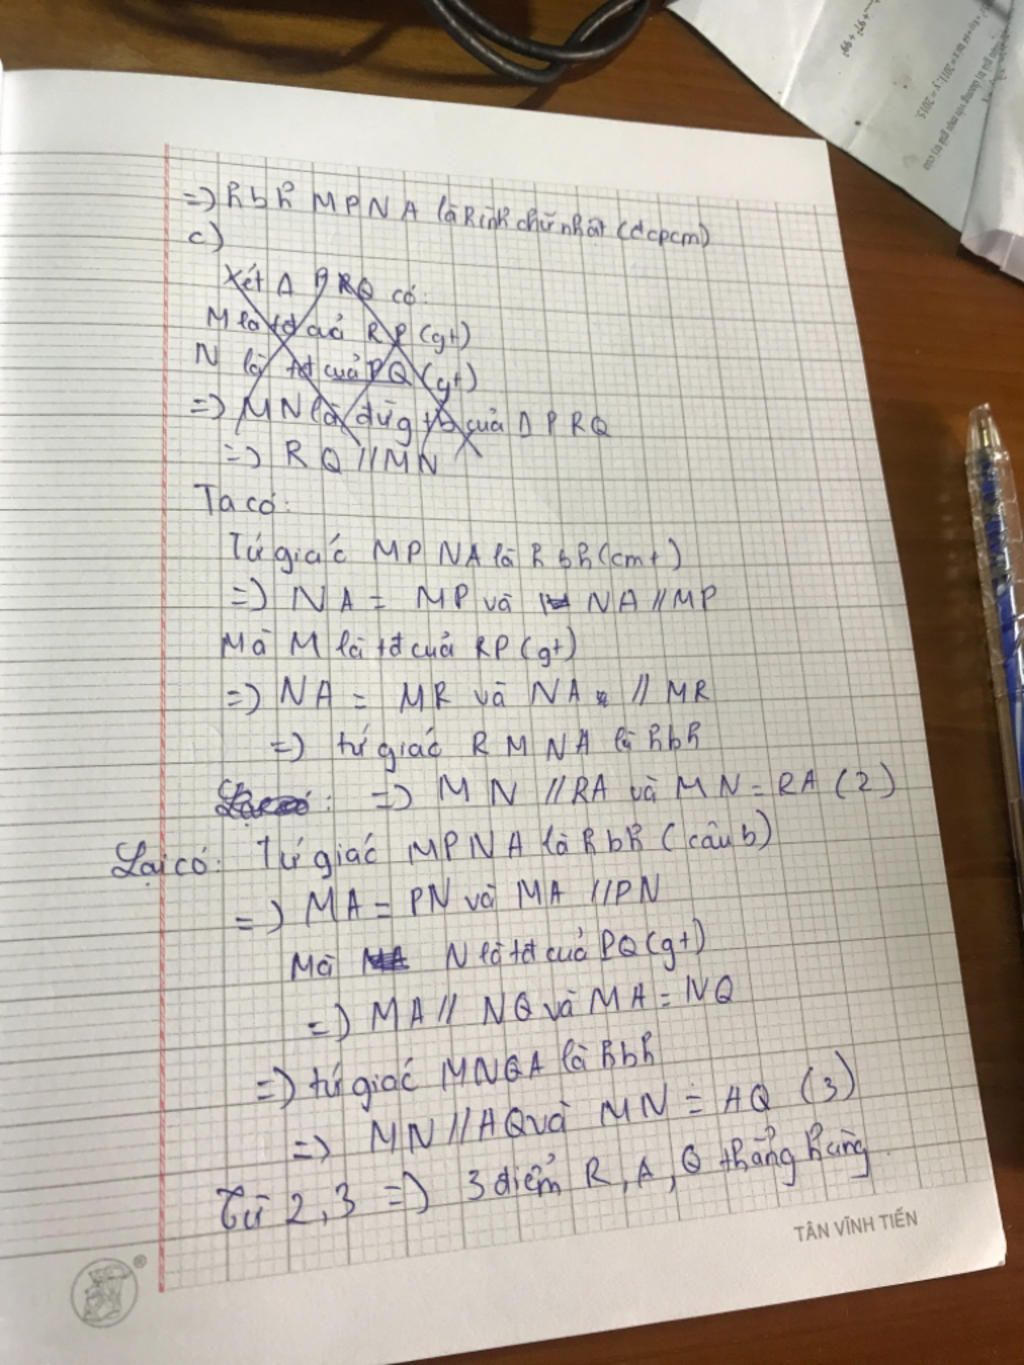 =) hbh MPNA là hình chữ nhật (đcpcm)
c)
Xét Δ PRQ có:
M là tđ củả RP (gt)
N là tđ củả PQ (gt)
=) MN là đừg tb củả Δ PRQ
=) RQ // MN
Ta có:
Tứ giác MPNA là hbh (cmt)
=) NA = MP và NA // MP
Mà M là tđ củả RP (gt)
=) NA = MR và NA // MR
=) tứ giác RMNA là hbh
=) MN // RA và MN = RA (2)
Lại có: Tứ giác MPNA là hbh (câu b)
=) MA = PN và MA // PN
Mà N là tđ củả PQ (gt)
=) MA // NQ và MA = NQ
=) tứ giác MNQA là hbh
=) MN // AQ và MN = AQ (3)
Từ 2, 3 =) 3 điểm R, A, Q thẳng hàng
TÂN VĨNH TIẾN
®